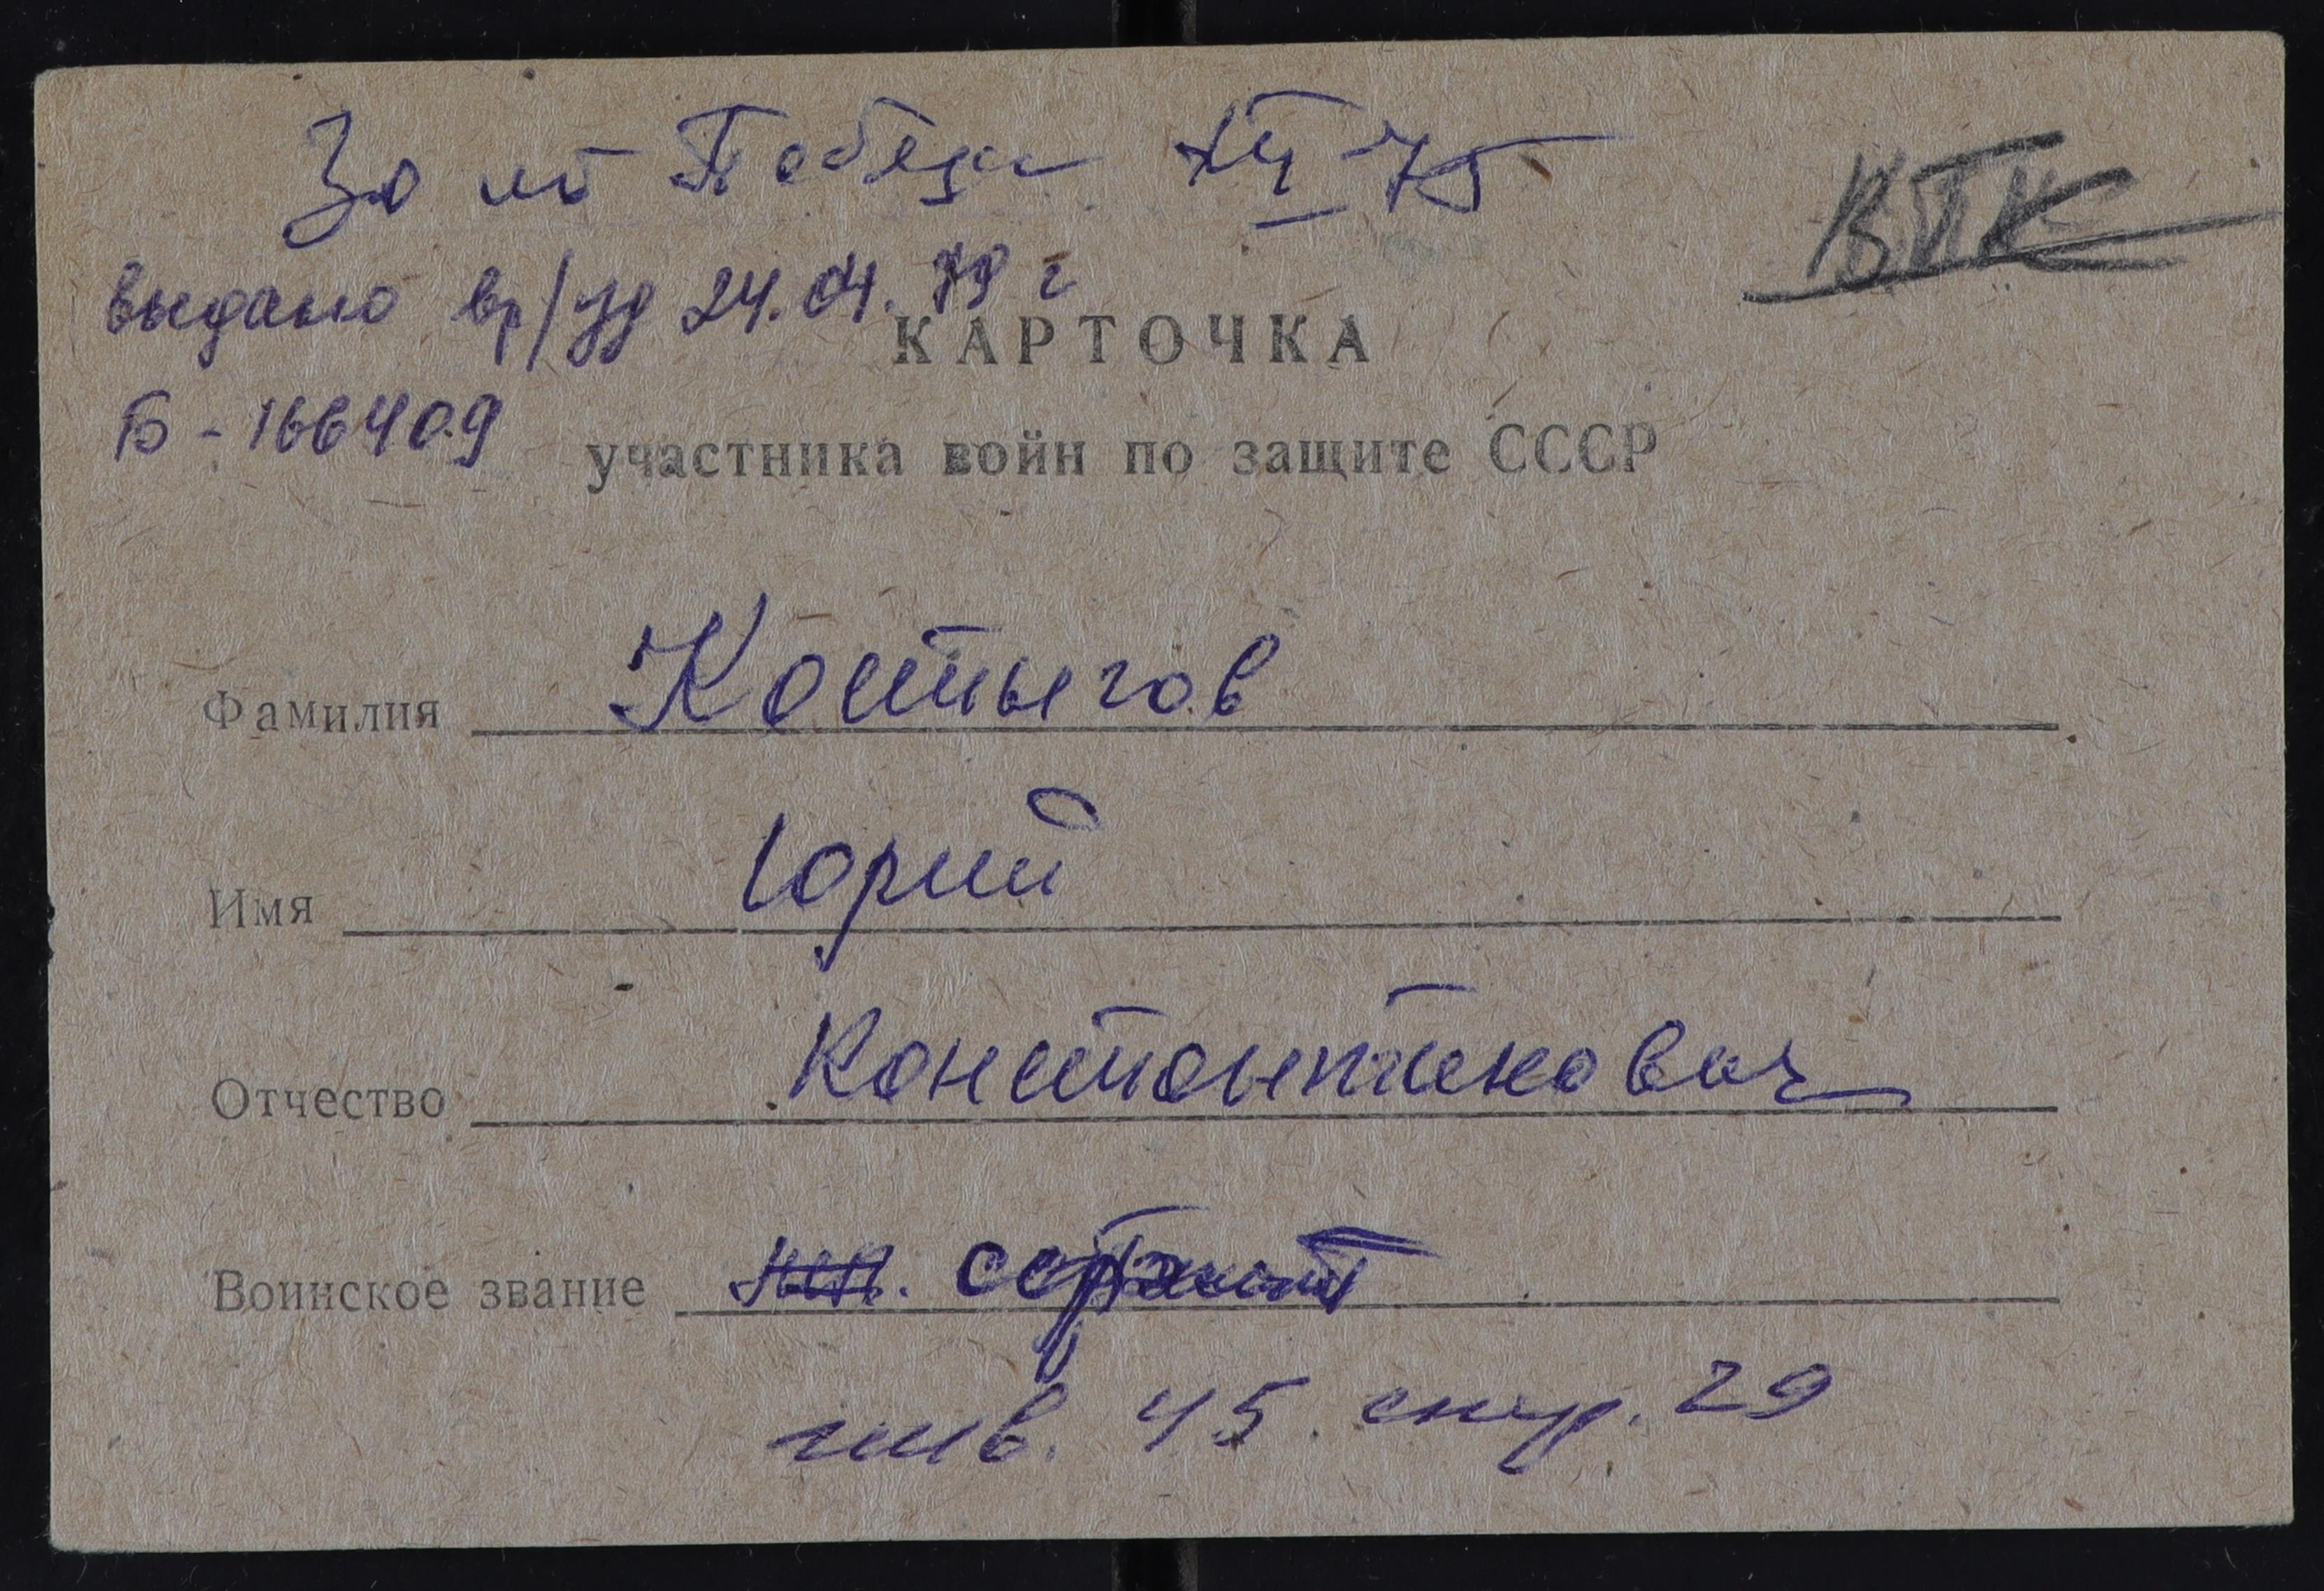 30 лет Победы XII-75
ВПК
выдано вр/уд 24.04.79 г
Б-166409
КАРТОЧКА
участника войн по защите СССР
Фамилия Костыгов
Имя Юрий
Отчество Константинович
Воинское звание сержант
45 29